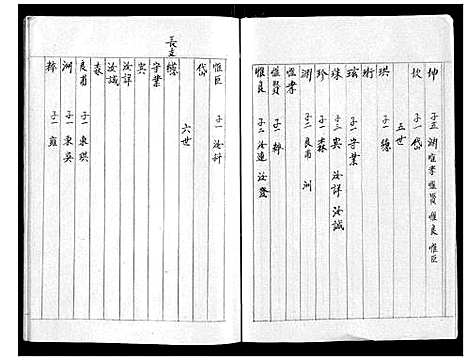 坤 子五 湖 惟孝 惟賢 惟良 惟臣
欽 子一 岱
五世
珙 子一 德
珩
玹 子一 守業
珠 子三 賓 汝詳 汝誠
珍 子一 森
湖 子二 良甫 洲
惟孝
惟賢 子一 粹
惟良 子二 汝連 汝登
惟臣 子一 汝升
岱
六世
長支 德
守業
賓
汝詳
汝誠
森
良甫 子一 東琪
洲 子一 東吳
粹 子一 雍